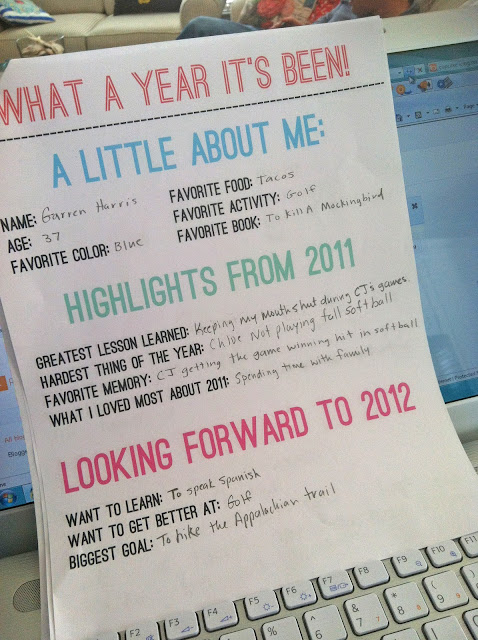 WHAT A YEAR IT'S BEEN!
A LITTLE ABOUT ME:
NAME: Garren Harris
AGE: 37
FAVORITE COLOR: Blue
FAVORITE FOOD: Tacos
FAVORITE ACTIVITY: Golf
FAVORITE BOOK: To Kill A Mockingbird
HIGHLIGHTS FROM 2011
GREATEST LESSON LEARNED: Keeping my Mouth shut during CJ's games
HARDEST THING OF THE YEAR: Chloe Not playing fall softball
FAVORITE MEMORY: CJ getting the game winning hit in softball
WHAT I LOVED MOST ABOUT 2011: Spending time with family
LOOKING FORWARD TO 2012
WANT TO LEARN: To speak Spanish
WANT TO GET BETTER AT: Golf
BIGGEST GOAL: To hike the Appalachian trail
F2
F3
F4
F5
F6
F7
F8
F9
F10
F11
%
5
^
6
&
7
*
8
(
9